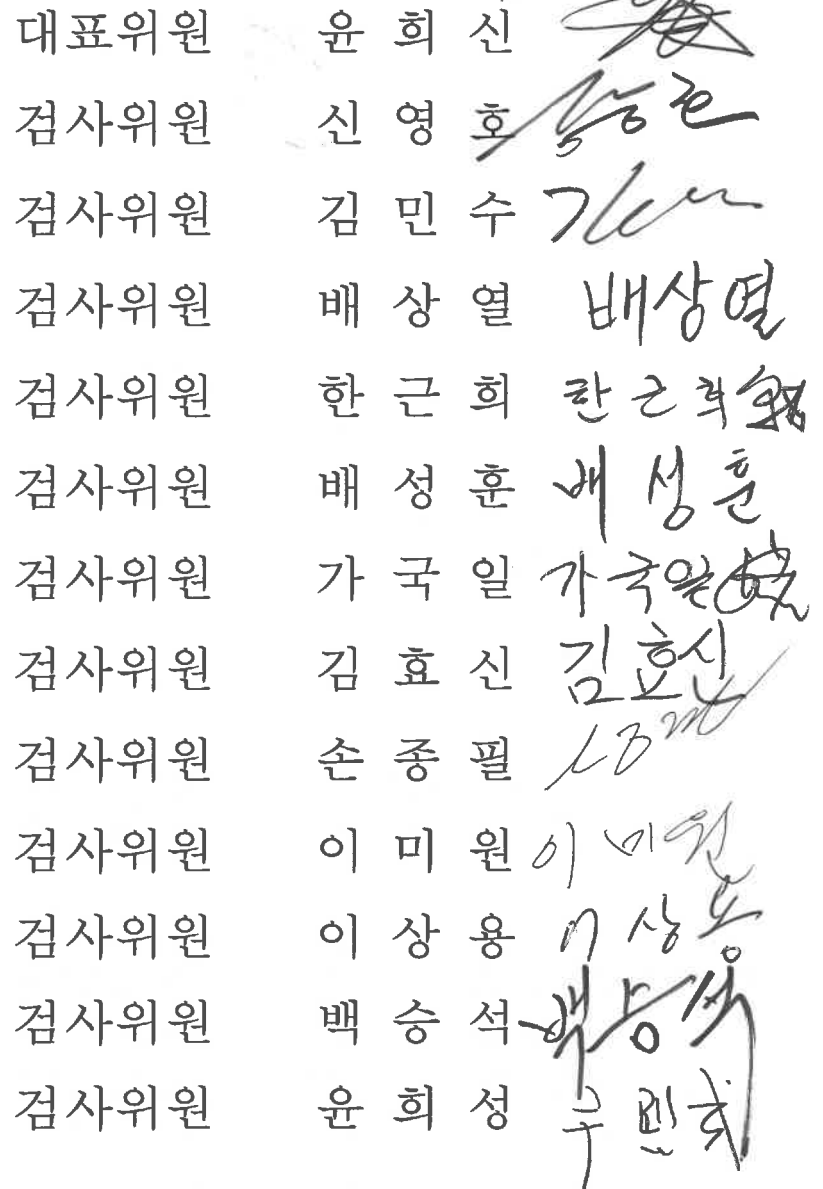 대표위원 윤희신
검사위원 신영호
검사위원 김민수
검사위원 배상열 배상열
검사위원 한근희 한근희
검사위원 배성훈 배성훈
검사위원 가국일 가국일
검사위원 김효신 김효신
검사위원 손종필
검사위원 이미원 이미원
검사위원 이상용 이상용
검사위원 백승석 백승석
검사위원 윤희성